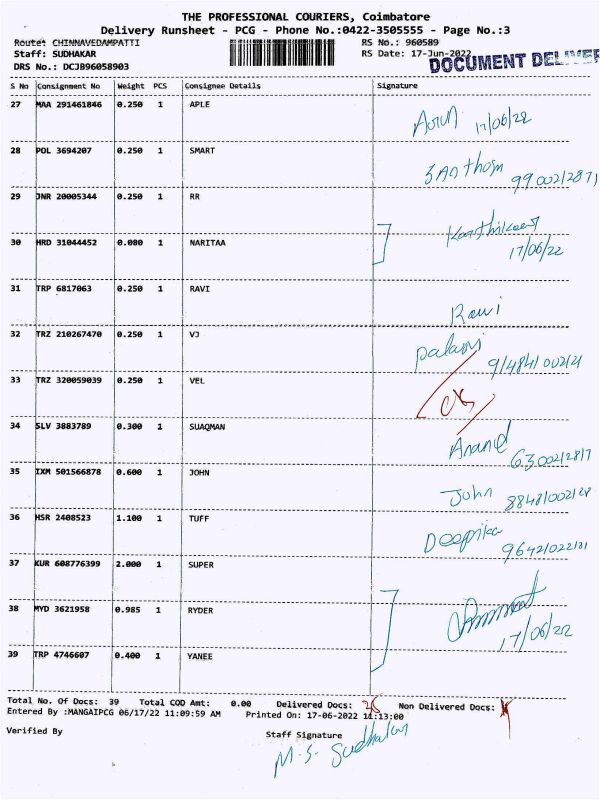 THE PROFESSIONAL COURIERS, Coimbatore
Delivery Runsheet - PCG - Phone No.:0422-3505555 - Page No.:3
Route: CHINNAVEDAMPATTI RS No.: 960589
Staff: SUDHAKAR RS Date: 17-Jun-2022
DOCUMENT DELIVER
DRS No.: DCJB96058903
S No Consignment No Weight PCS Consignee Details Signature
27 MAA 291461846 0.250 1 APLE
Arun 17/06/22
28 POL 3694207 0.250 1 SMART
SAnthosh
29 JNR 20005344 0.250 1 RR
30 HRD 31044452 0.080 1 NARITAA
17/06/22
31 TRP 6817063 0.250 1 RAVI
Ravi
32 TRZ 210267470 0.250 1 VJ
33 TRZ 320059039 0.250 1 VEL
34 SLV 3883789 0.300 1 SUAQMAN
Anand
35 IXM 501566878 0.600 1 JOHN
John
36 HSR 2408523 1.100 1 TUFF
Deepika
37 KUR 608776399 2.000 1 SUPER
38 MYD 3621958 0.985 1 RYDER
17/06/22
39 TRP 4746607 0.400 1 YANEE
Total No. Of Docs: 39 Total COD Amt: 0.00 Delivered Docs: Non Delivered Docs:
Entered By :MANGAIPCG 06/17/22 11:09:59 AM Printed On: 17-06-2022 11:13:00
Verified By Staff Signature
M.S. Sudhakar